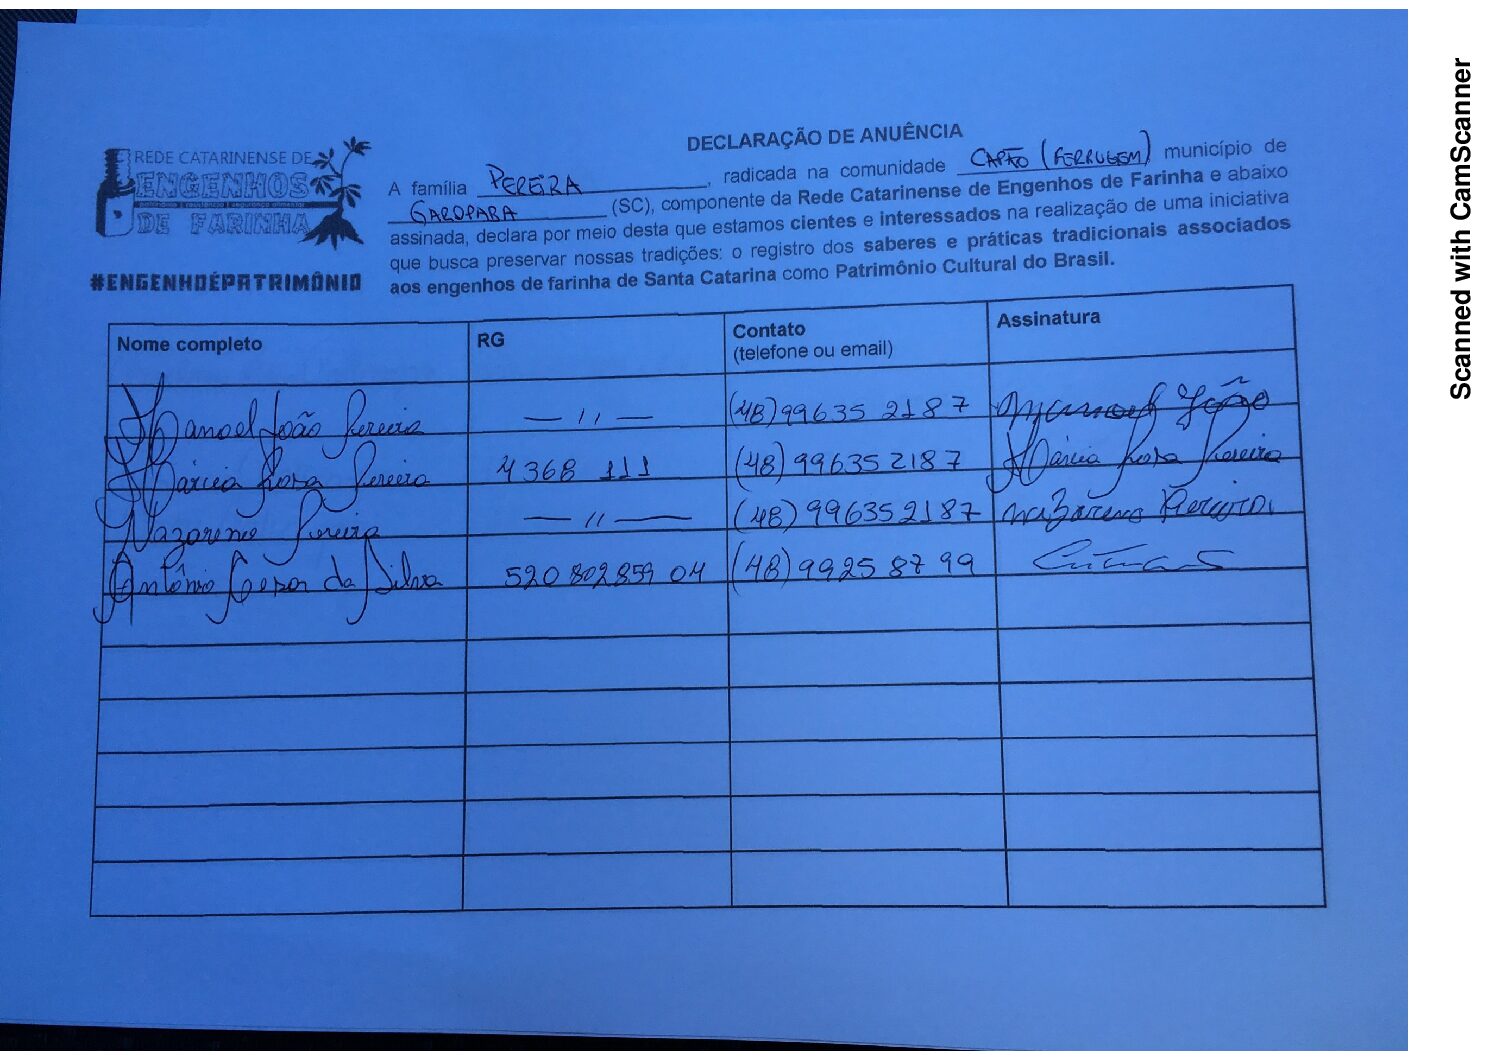 DECLARAÇÃO DE ANUÊNCIA
REDE CATARINENSE DE
ENGENHOS
patrimônio | resistência | segurança alimentar
DE FARINHA
#ENGENHOÉPATRIMÔNIO
A família PEREIRA, radicada na comunidade CAPÃO (FERRUGEM) município de
GAROPABA (SC), componente da Rede Catarinense de Engenhos de Farinha e abaixo
assinada, declara por meio desta que estamos cientes e interessados na realização de uma iniciativa
que busca preservar nossas tradições: o registro dos saberes e práticas tradicionais associados
aos engenhos de farinha de Santa Catarina como Patrimônio Cultural do Brasil.
Nome completo RG Contato (telefone ou email) Assinatura
Manoel João Pereira — 11 — (48) 99635 2187 Manoel João
Márcia Rosa Pereira 4 368 111 (48) 99635 2187 Márcia Rosa Pereira
Nazareno Pereira — 11 — (48) 99635 2187 Nazareno Pereira
Antônio Cesar da Silva 520 802 859 04 (48) 9925 8799
Scanned with CamScanner